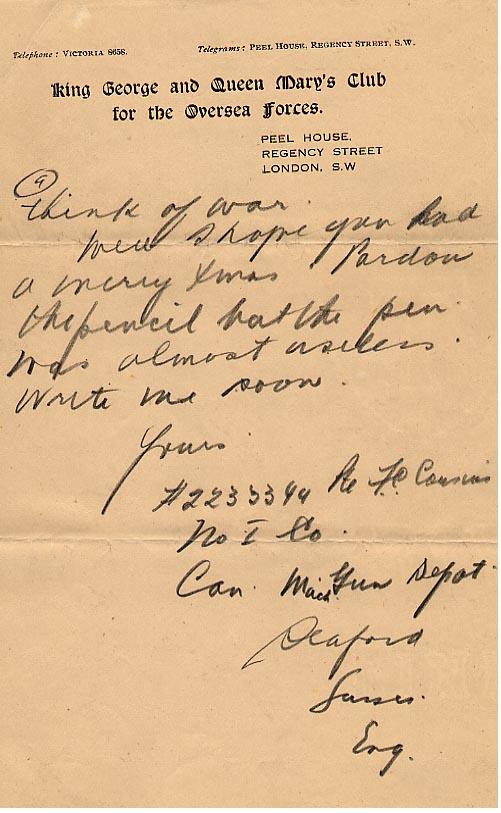 Telephone: VICTORIA 8658.
Telegrams: PEEL HOUSE, REGENCY STREET, S.W.
King George and Queen Mary's Club
for the Oversea Forces.
PEEL HOUSE,
REGENCY STREET
LONDON, S.W
think of war.
Well I hope you had
a merry Xmas. Pardon
the pencil but the pen
was almost useless.
Write me soon.
Yours
Pte F.C. Cousins
No I Co.
Can. Mach Gun Depot
Seaford
Sussex
Eng.